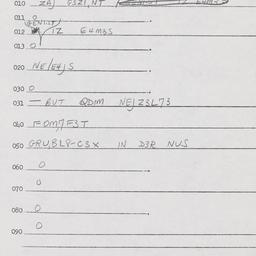 010 ZAJ G3Z1,NT
011 O
012 IZ E4M3S
013 O
020 NE/E4JS
030 O
031 — BUT QDIM NEJZ3L73
040 FOM,7F3T
050 GRU,BL8-C3X IN D3R NUS
060 O
070 O
080 O
090 O